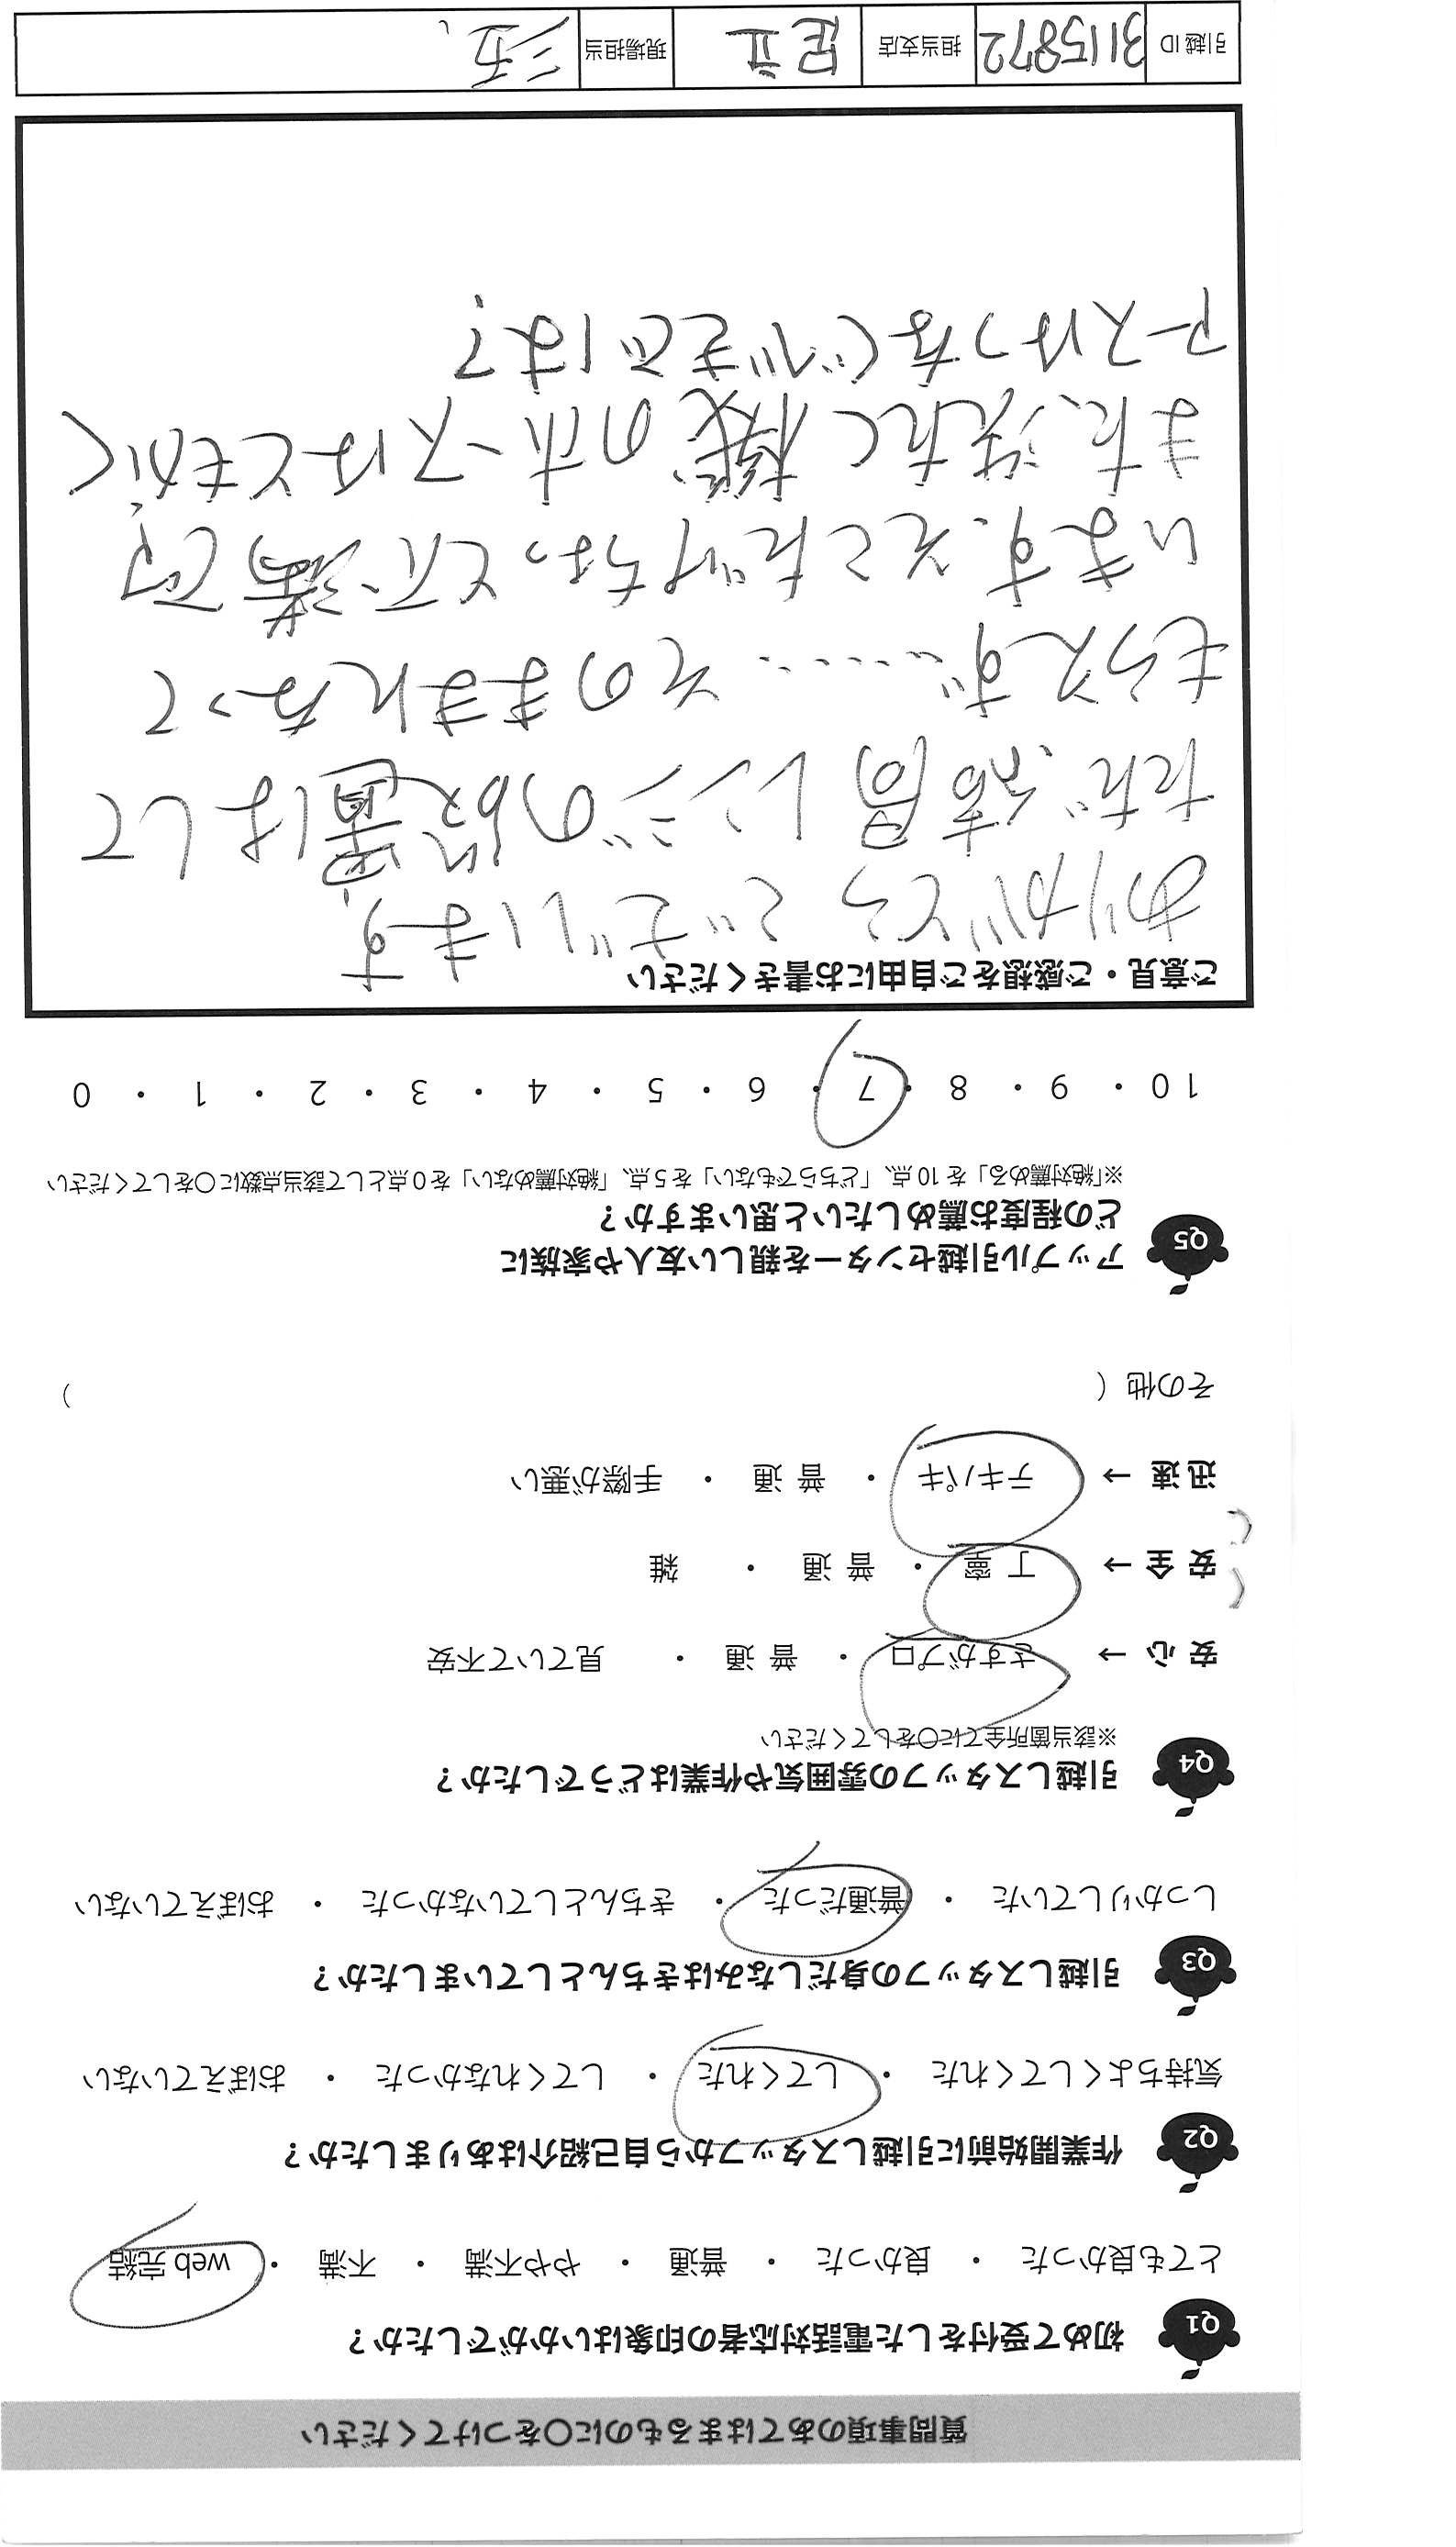 質問事項のあてはまるものに〇をつけてください
Q1 初めて受付をした電話対応者の印象はいかがでしたか？
とても良かった ・ 良かった ・ 普通 ・ やや不満 ・ 不満 ・ web 完結
Q2 作業開始前に引越しスタッフから自己紹介はありましたか？
気持ちよくしてくれた ・ してくれた ・ してくれなかった ・ おぼえていない
Q3 引越しスタッフの身だしなみはきちんとしていましたか？
しっかりしていた ・ 普通だった ・ きちんとしていなかった ・ おぼえていない
Q4 引越しスタッフの雰囲気や作業はどうでしたか？
※該当箇所全てに〇をしてください
安心 → さすがプロ ・ 普通 ・ 見ていて不安
安全 → 丁寧 ・ 普通 ・ 雑
迅速 → テキパキ ・ 普通 ・ 手際が悪い
その他（ ）
Q5 アップル引越センターを親しい友人や家族に
どの程度お薦めしたいと思いますか？
※「絶対薦める」を 10 点、「どちらでもない」を 5 点、「絶対薦めない」を 0 点として該当点数に〇をしてください
10 ・ 9 ・ 8 ・ 7 ・ 6 ・ 5 ・ 4 ・ 3 ・ 2 ・ 1 ・ 0
ご意見・ご感想をご自由にお書きください
ありがとうございます
ただ、結局レンジの設置はして
もらえず……そのままになって
います。そこだけちょっと不満です
また、洗たく機のホースはともかく
アースはつなぐべきでは？
引越 ID 3115872 担当支店 足立 現場担当 三五